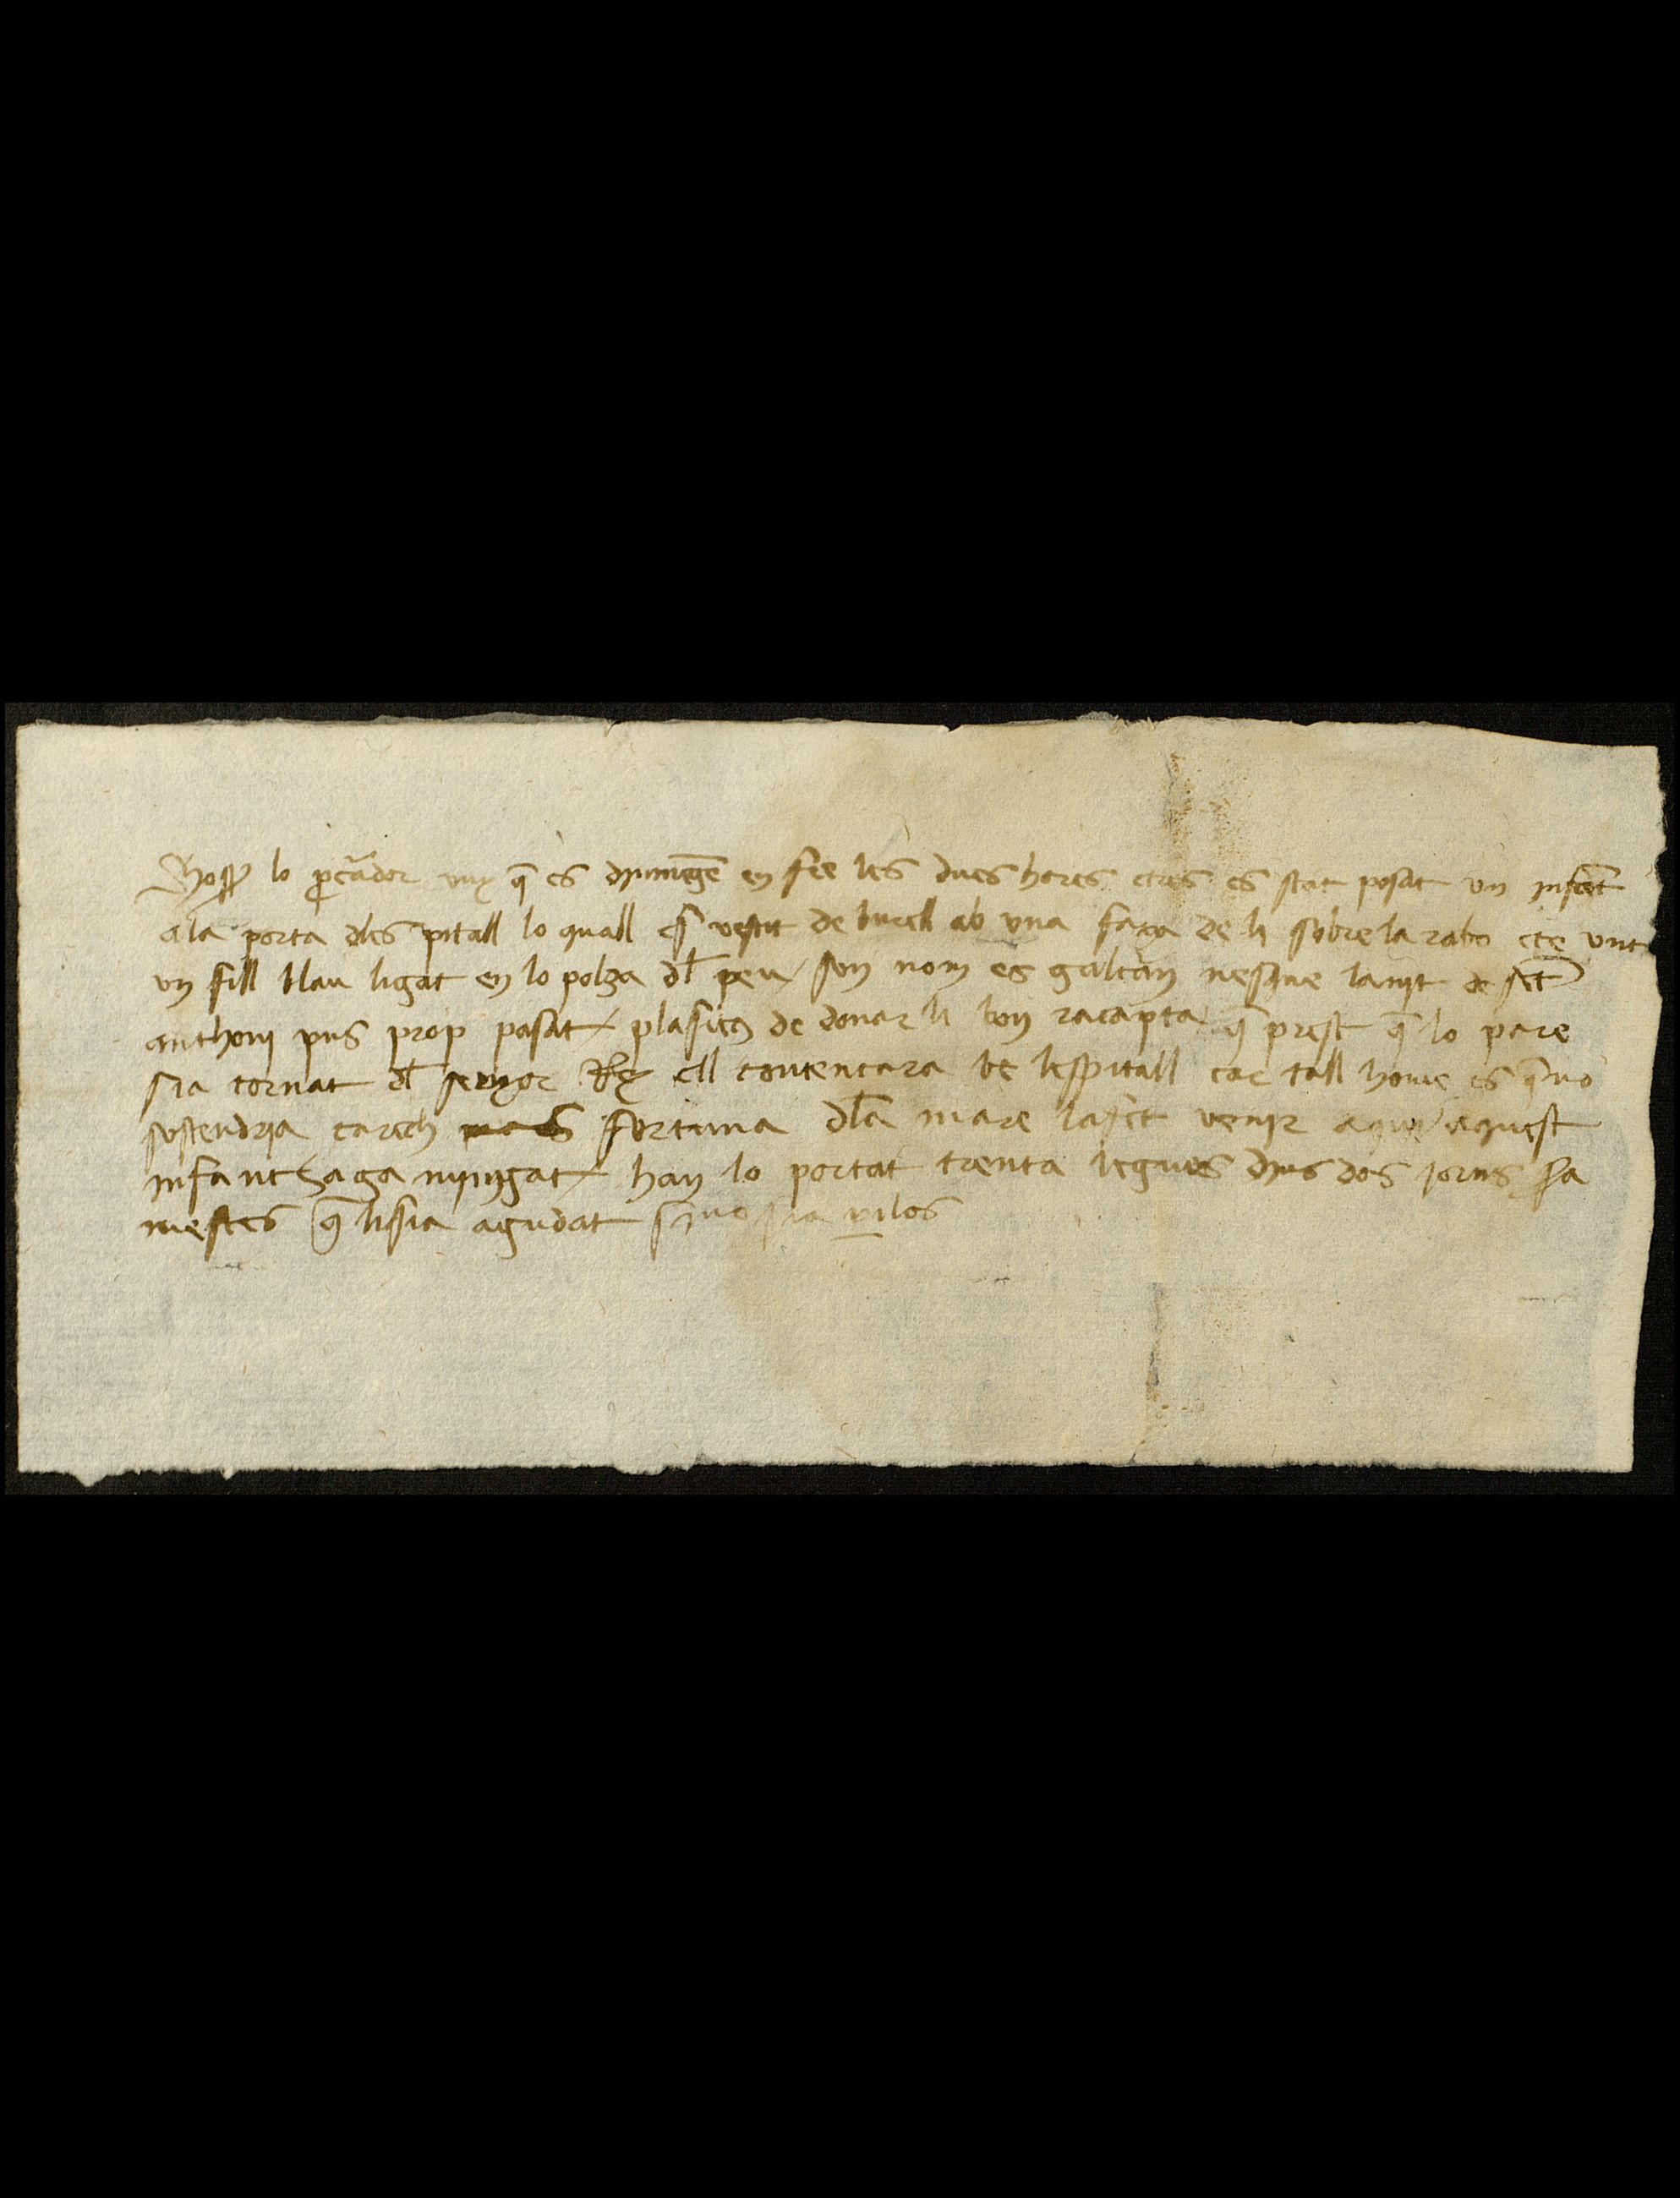 Mosser lo p̱cᵃador vuy q̄ es dyumēge en fre les dues hores e tres es stat posat vn infāt
ala porta dles pitall lo quall es vestit de burell ab vna faxa de li sobre la rabo e te
vn fill blau ligat en lo polza dl̄ peu / son nom es galcan nesque la nyt de sct̄
anthoni pus prop pasat / plasieus de donar li bon racapta q̄ prest q̄ lo pare
sia tornat dl̄ senyor Rey ell contentara be lespitall car tall home es q̄ no
sostendria carech fortuna dl̄a mare la fet venir aqui / aquest
infant haga nyngat / han lo portat trenta legues dyns dos jorns ha
mestes q̄ li sia agudat sy no sia